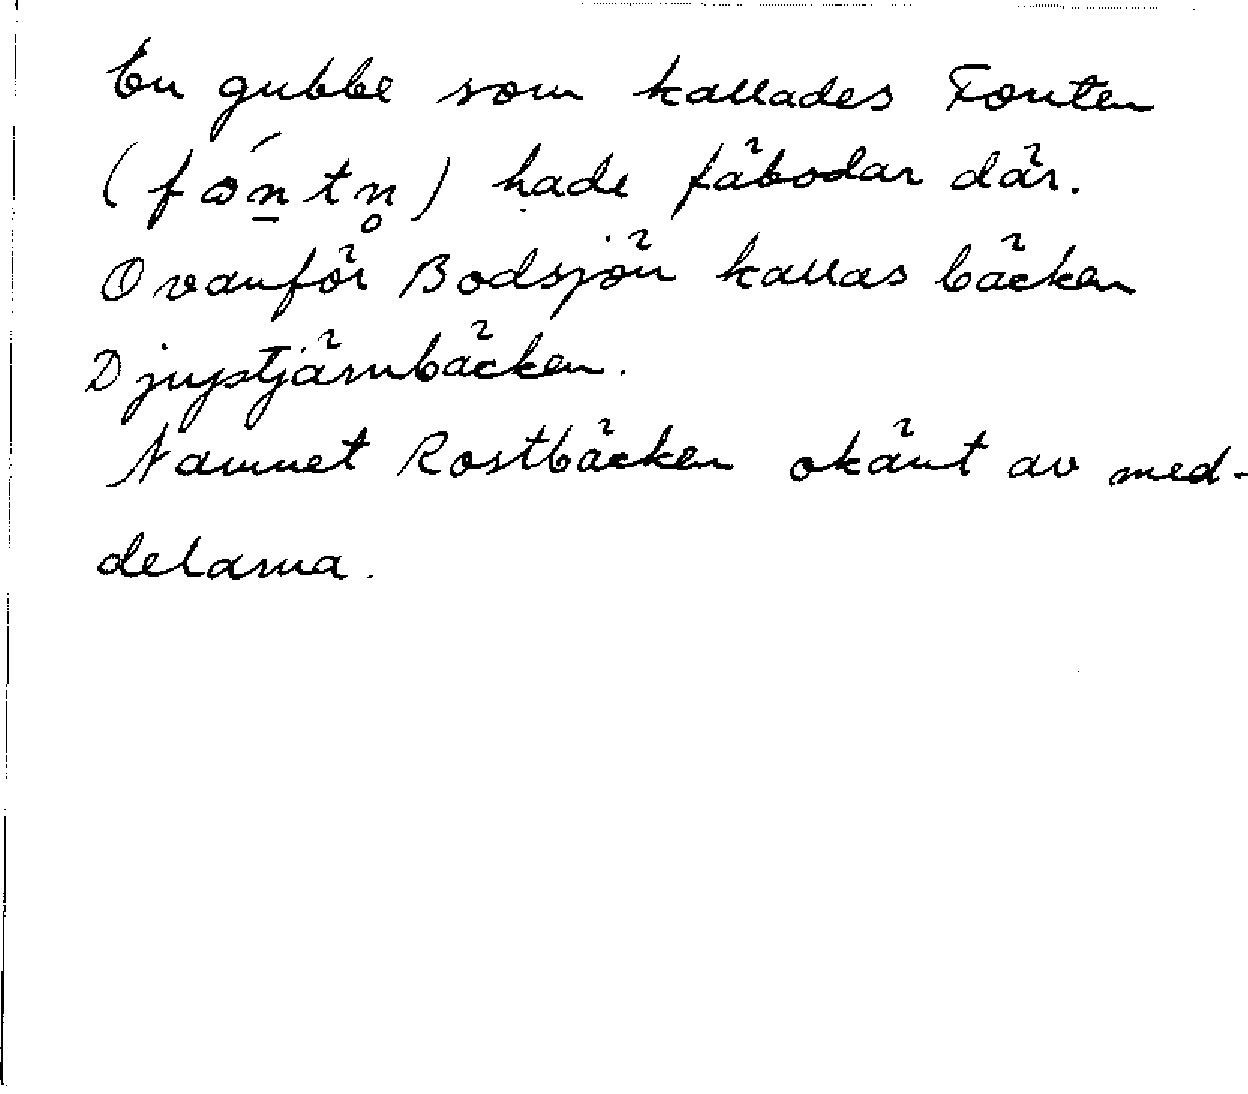 En gubbe som kallades Fonten
(fón̲tn̥) hade fäbodar där.
Ovanför Bodsjön kallas bäcken
Djuptjärnbäcken.
Namnet Rostbäcken okänt av med-
delarna.